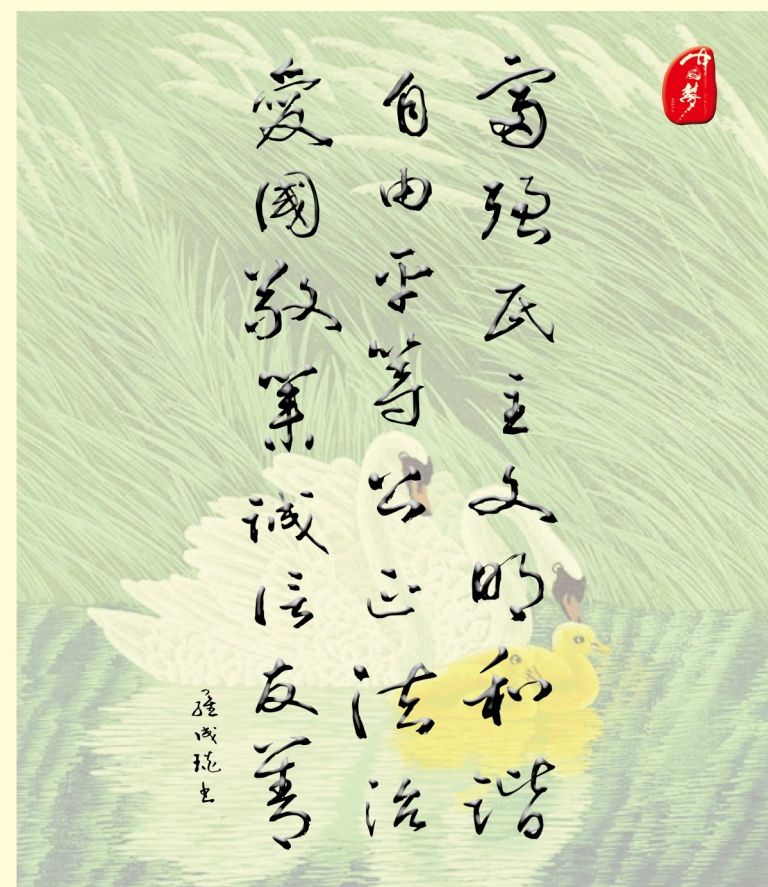 中国梦
富强民主文明和谐
自由平等公正法治
愛國敬業誠信友善